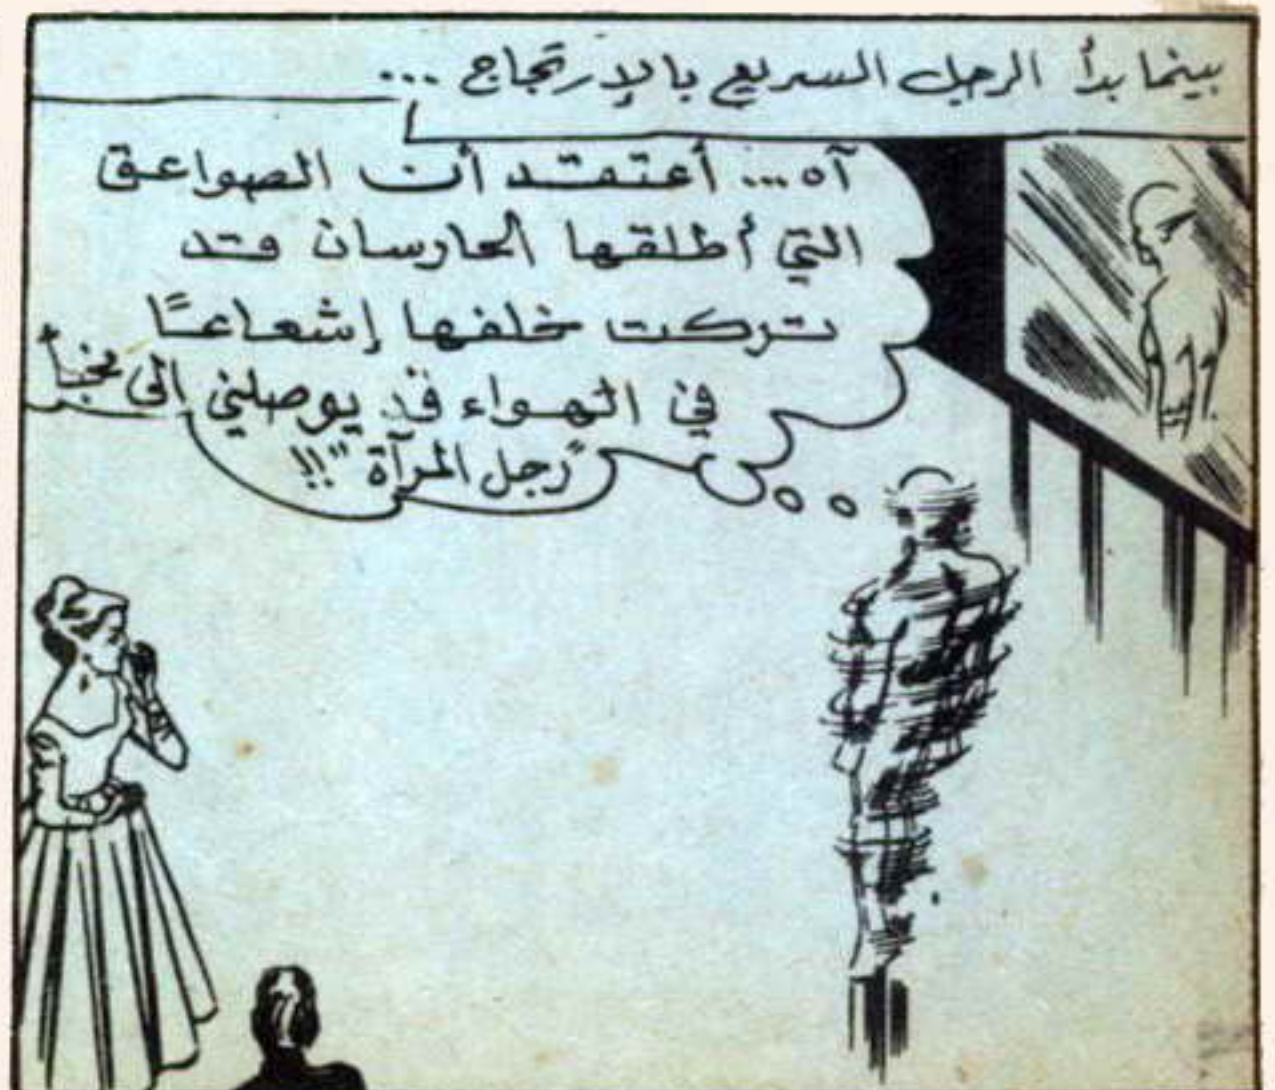 بينما بدأ الرجل السريع بالإرتجاج ...
آه ... أعتقد أن الصواعق
التي أطلقها الحارسان قد
تركت خلفها إشعاعًا
في الهواء قد يوصلني الى مخبأ
"رجل المرآة" !!